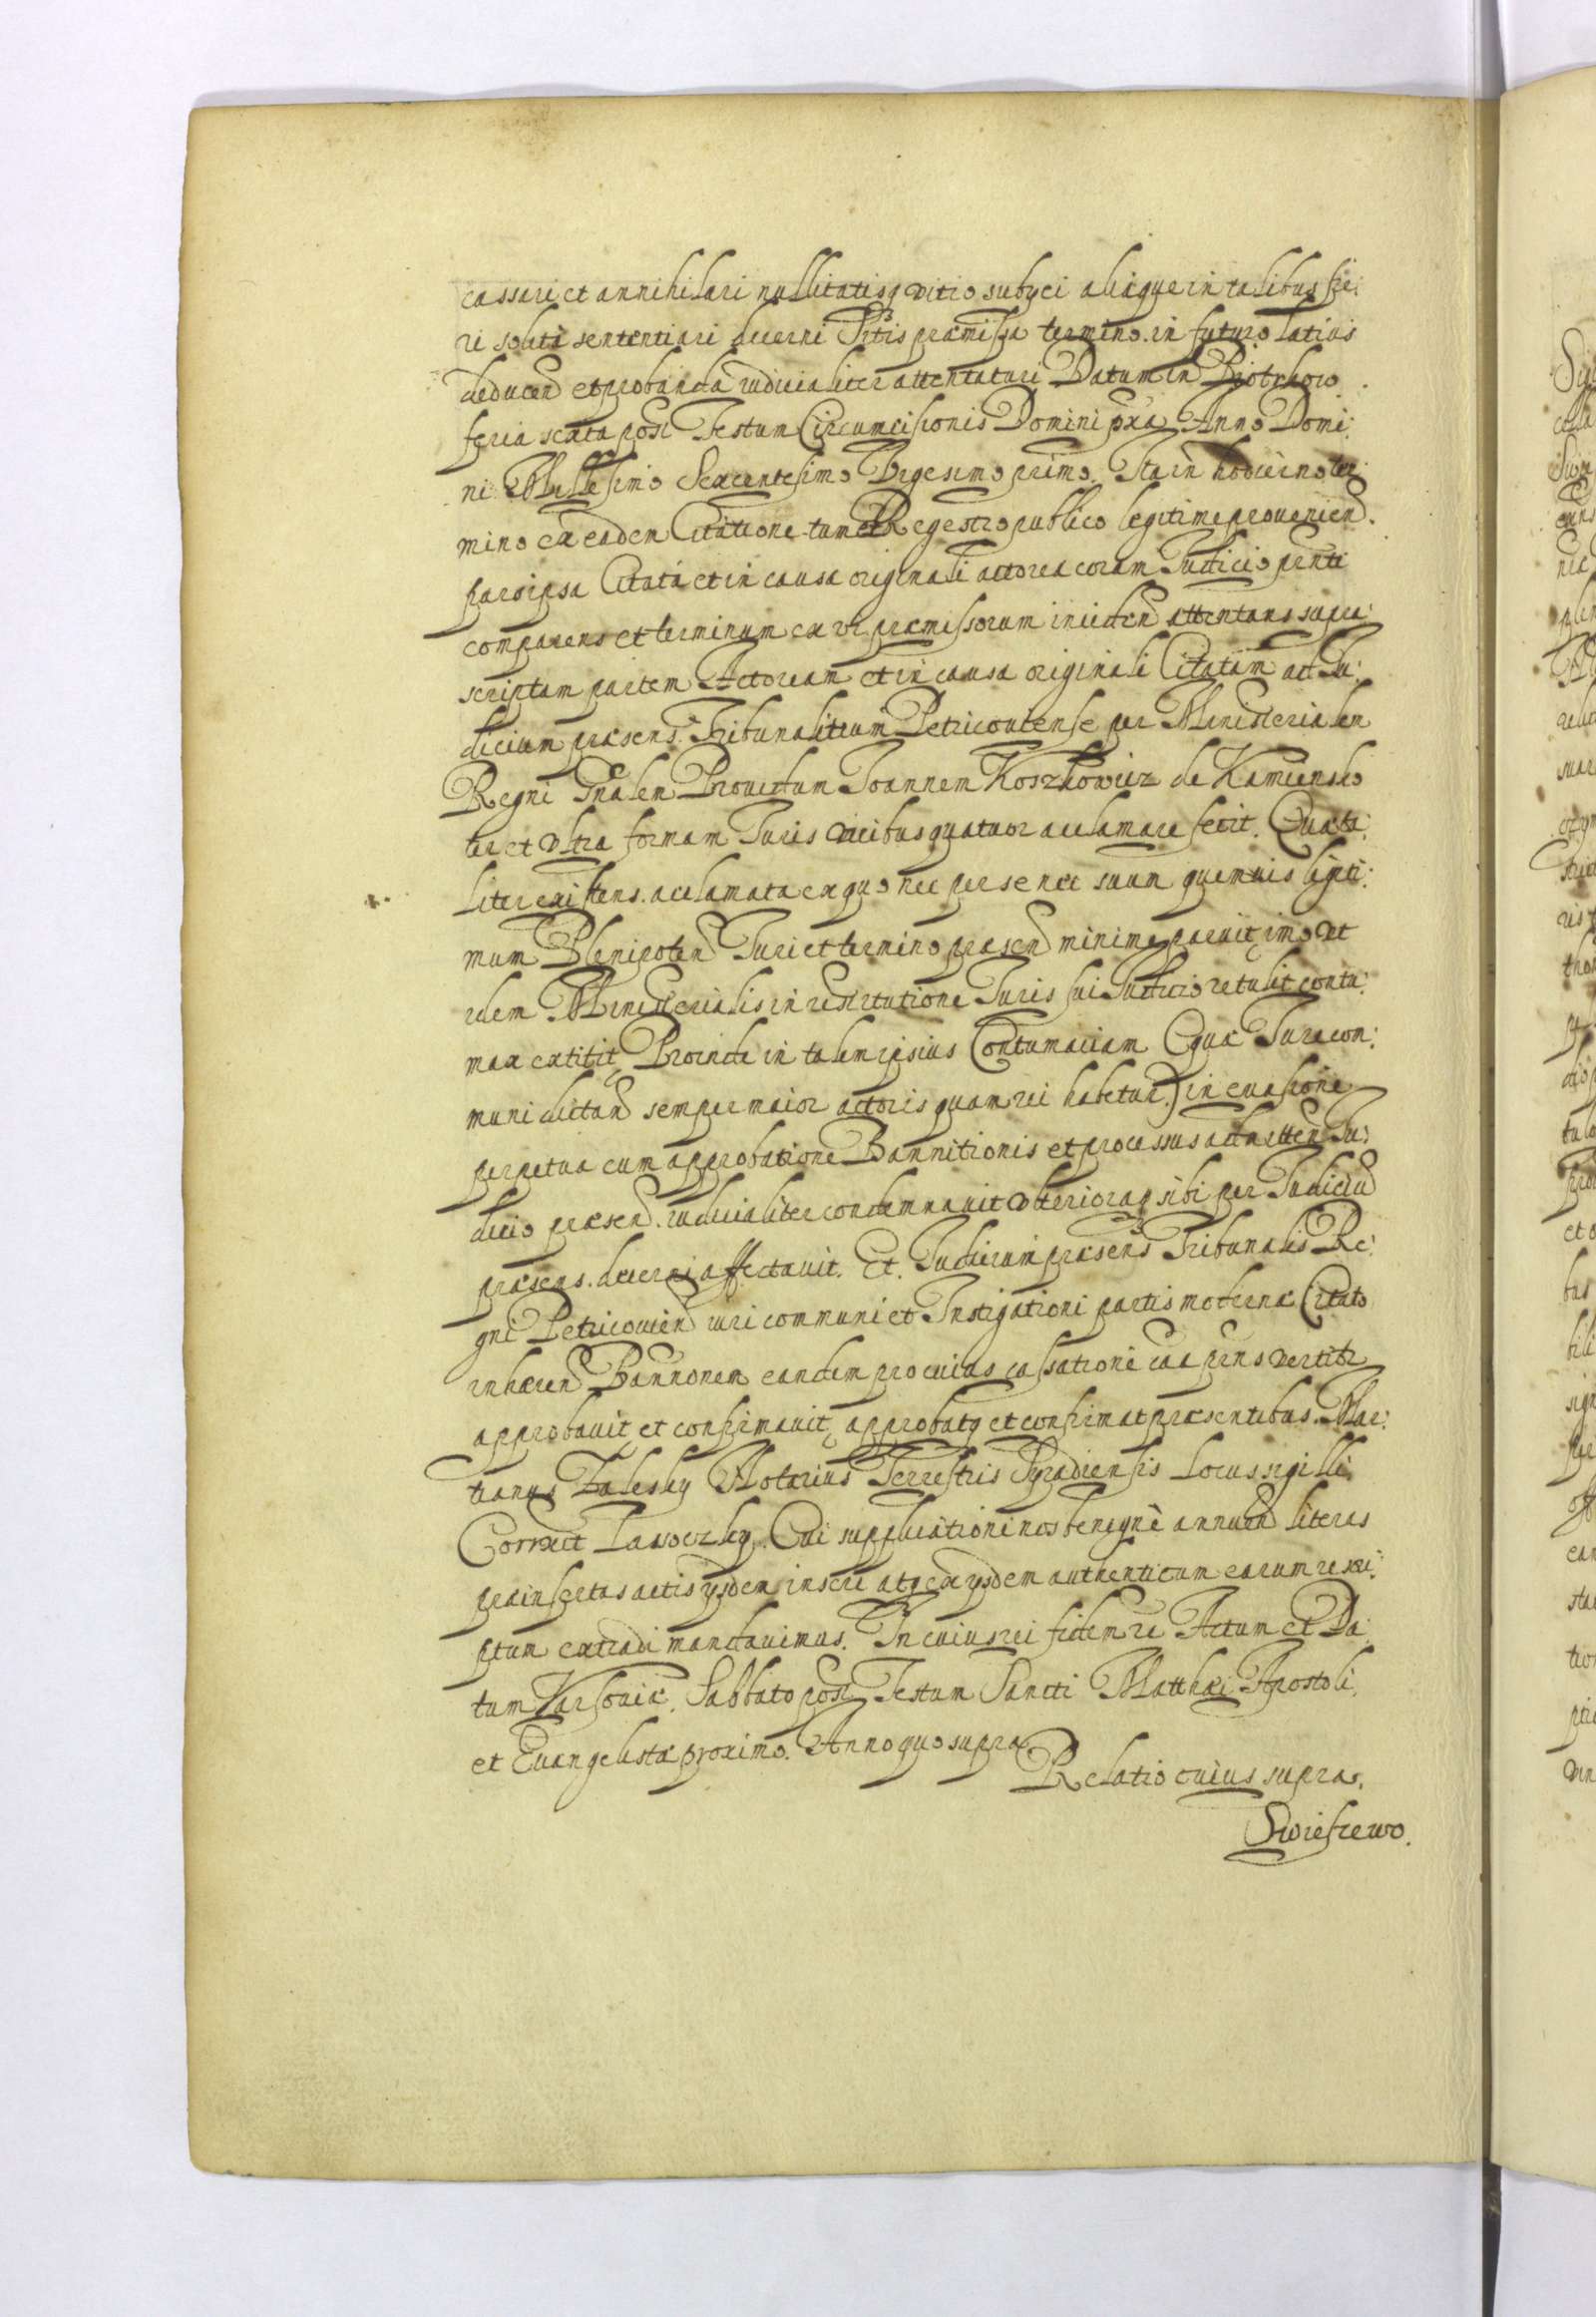 cassari et annihilari nullitatisq vitio subyci aliaque in talibus fie:
ri solita sententiari decerni Sitis praemissa termino in futuro latius
deducend et probanda iudicialiter attentaturi Datum in Piotrkow
feria sexta post Festum Circumcisionis Domini pxa Anno Domi:
ni Millesimo Sexcentesimo Trigesimo primo. Ita in hodierno ter:
mino ex eadem Citatione tum et Regestro publico legitime proueniend.
pars ipsa Citata et in causa originali actorea coram Iudicio pnti
comparens et terminum ex vi praemissorum inibidem attentans supra:
scriptam partem Actoream et in causa originali Citatam ad Iu:
dicium praesens Tribunalitium Petricouiense per Ministerialem
Regni Gnalem Prouidum Joannem Koszkowicz de Kamiensko
ter et vltra formam Iuris vicibus quatuor acclamare fecit. Quae ta:
liter existens acclamata ex quo nec per se nec suum quemuis ligiti:
mum Plenipotend Iuri et termino praesend minime paruit, imo vt
idem Ministerialis in restitutione Iuris sui Iudicio retulit contu:
max extitit Proinde in talem ipsius Contumaciam (quae Iura con:
muni dictand semper maior actoris quam rei habetur) in euasione
perpetua cum approbatione Bannitionis et processus acta attend Iu:
dicio praesend iudicialiter condemnauit vlterioraq sibi per Iudiciu
praesens decerni affectauit. Et Iudicium praesens Tribunalis Re:
gni Petricouien iuri communi et Instigationi partis modernae Citatae
inhaeren Bannonem eandem pro cuius cassatione caa prns vertitr
approbauit et confirmauit, approbatq et confirmat praesentibus. Mar:
tianus Zalesky Notarius Terrestris Syradiensis Locus sigilli
Correxit Lasoczky. Cui supplicationi nos benigne annuen literas
prainsertas actis ysdem inseri atq ex ysdem authenticum earum rescri:
ptum extradi mandauimus. In cuius rei fidem re Actum et Da:
tum Varsouiae. Sabbato post Festum Sancti Matthaei Apostoli
et Euangelistae proximo. Anno quo supra
Relatio cuius supra.